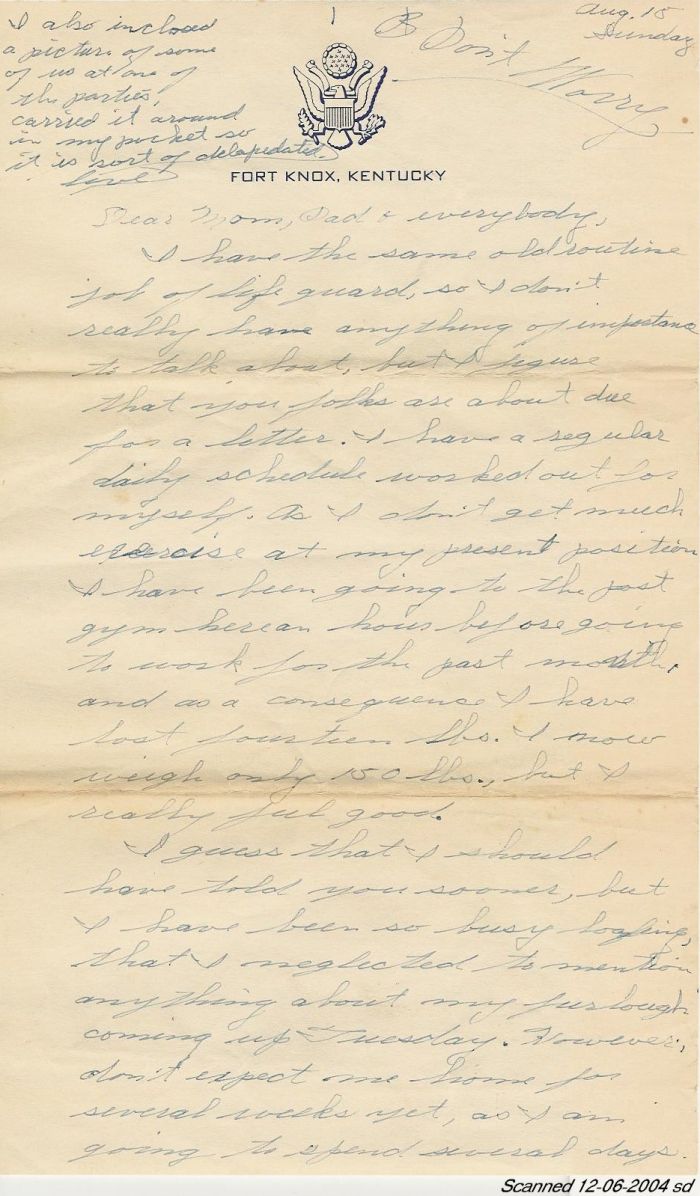 I also inclosed
a picture of some
of us at one of
the parties,
carried it around
in my pocket so
it is sort of delapedated.
love
1
Don't Worry
Aug. 18
Sunday
FORT KNOX, KENTUCKY
Dear Mom, Dad & everybody,
I have the same old routine
job of life guard, so I don't
really have anything of importance
to talk about, but I figure
that you folks are about due
for a letter. I have a regular
daily schedule worked out for
myself. As I don't get much
exercise at my present position
I have been going to the post
gym here an hour before going
to work for the past month,
and as a consequence I have
lost fourteen lbs. I now
weigh only 150 lbs., but I
really feel good.
I guess that I should
have told you sooner, but
I have been so busy loafing,
that I neglected to mention
anything about my furlough
coming up Tuesday. However,
don't expect me home for
several weeks yet, as I am
going to spend several days.
Scanned 12-06-2004 sd